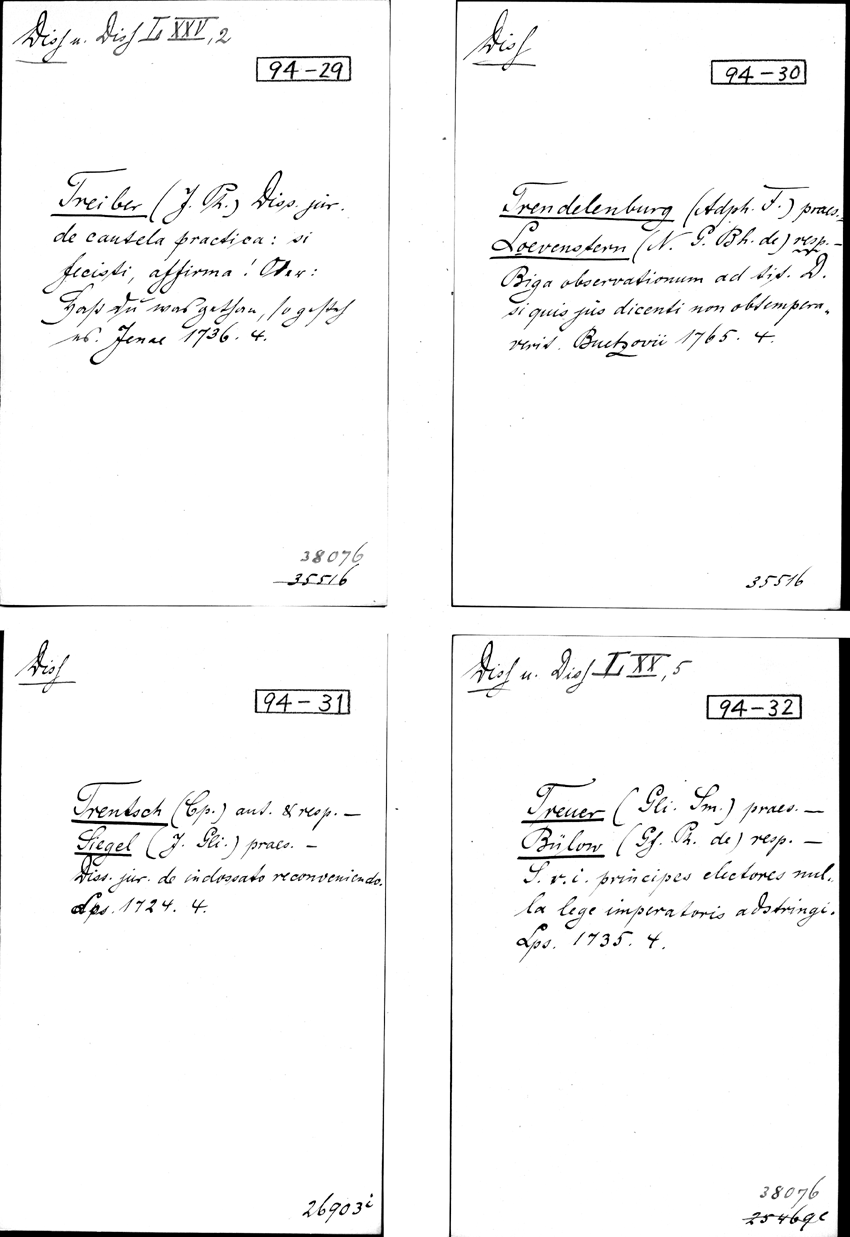 Diss u. Diss L XXV, 2
94-29
Treiber (J. Ph.) Diss. jur.
de cautela practica: si
fecisti, affirma! Oder:
Hast du was gethan, so gesteh
es. Jenae 1736. 4.
38076
35516
Diss
94-30
Trendelenburg (Adph. F.) praes.-
Loevenstern (N. G. Bh. de) resp. -
Biga observationum ad tit. D.
si quis jus dicenti non obtempera-
verit. Buetzovii 1765. 4.
35516
Diss
94-31
Trentsch (Cp.) aut. & resp. -
Siegel (J. Gli.) praes. -
Diss. jur. de indossato reconveniendo.
Lps. 1724. 4.
26903i
Diss u. Diss L XX, 5
94-32
Treuer (Gli. Sm.) praes. -
Bülow (Gf. Ph. de) resp. -
S. v. i. principes electores nul-
la lege imperatoris adstringi.
Lps. 1735. 4.
38076
25469c